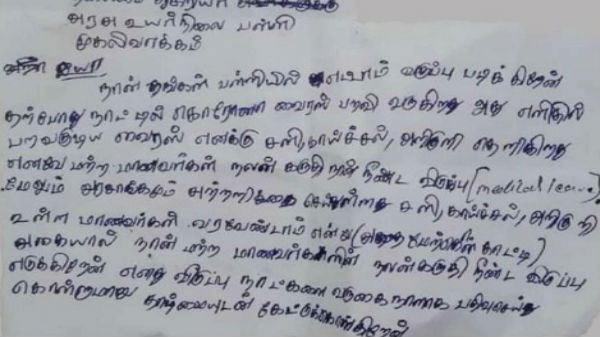 தலைமை ஆசிரியர்
அரசு உயர்நிலை பள்ளி
முகலிவாக்கம்
ஐயா
நான் தங்கள் பள்ளியில் எட்டாம் வகுப்பு படிக்கிறேன்
தற்போது நாட்டில் கொரோனா வைரஸ் பரவி வருகிறது அது எளிதில்
பரவகூடிய வைரஸ் எனக்கு சளி, காய்ச்சல், அறிகுறி தெரிகிறது
எனவே மற்ற மாணவர்கள் நலன் கருதி நான் நீண்ட விடுப்பு (medical leave).
மேலும் அரசாங்கமும் சுற்றறிக்கை செய்துள்ளது சளி, காய்ச்சல், அறிகுறி
உள்ள மாணவர்கள் வரவேண்டாம் என்று (அதை மேற்கோள் காட்டி)
ஆகையால் நான் மற்ற மாணவர்களின் நலன்கருதி நீண்ட விடுப்பு
எடுக்கிறேன் எனது விடுப்பு நாட்களை வருகை நாளாக பதிவுசெய்து
கொள்ளுமாறு தாழ்மையுடன் கேட்டுக்கொள்கிறேன்